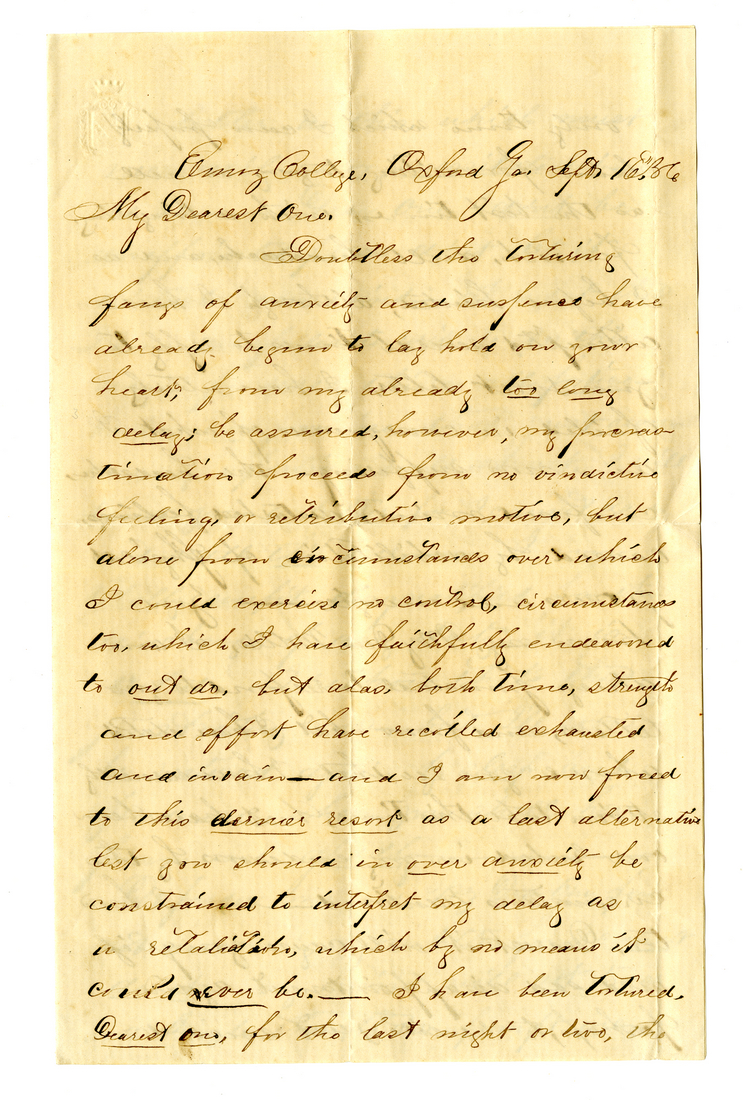 Emory College, Oxford Ga. Sept. 16th, 56
My Dearest One.
Doubtless the torturing
fangs of anxiety and suspense have
already begun to lay hold on your
heart, from my already too long
delay; be assured, however, my procras-
tination proceeds from no vindictive
feeling, or retributive motive, but
alone from circumstances over which
I could exercise no control, circumstances
too, which I have faithfully endeavored
to out do, but alas, both time, strength
and effort have recoiled exhausted
and in vain — and I am now forced
to this dernier resort as a last alternative
lest you should in over anxiety be
constrained to interpret my delay as
a retaliation, which by no means it
could ever be. — I have been tortured,
Dearest one, for the last night or two, the